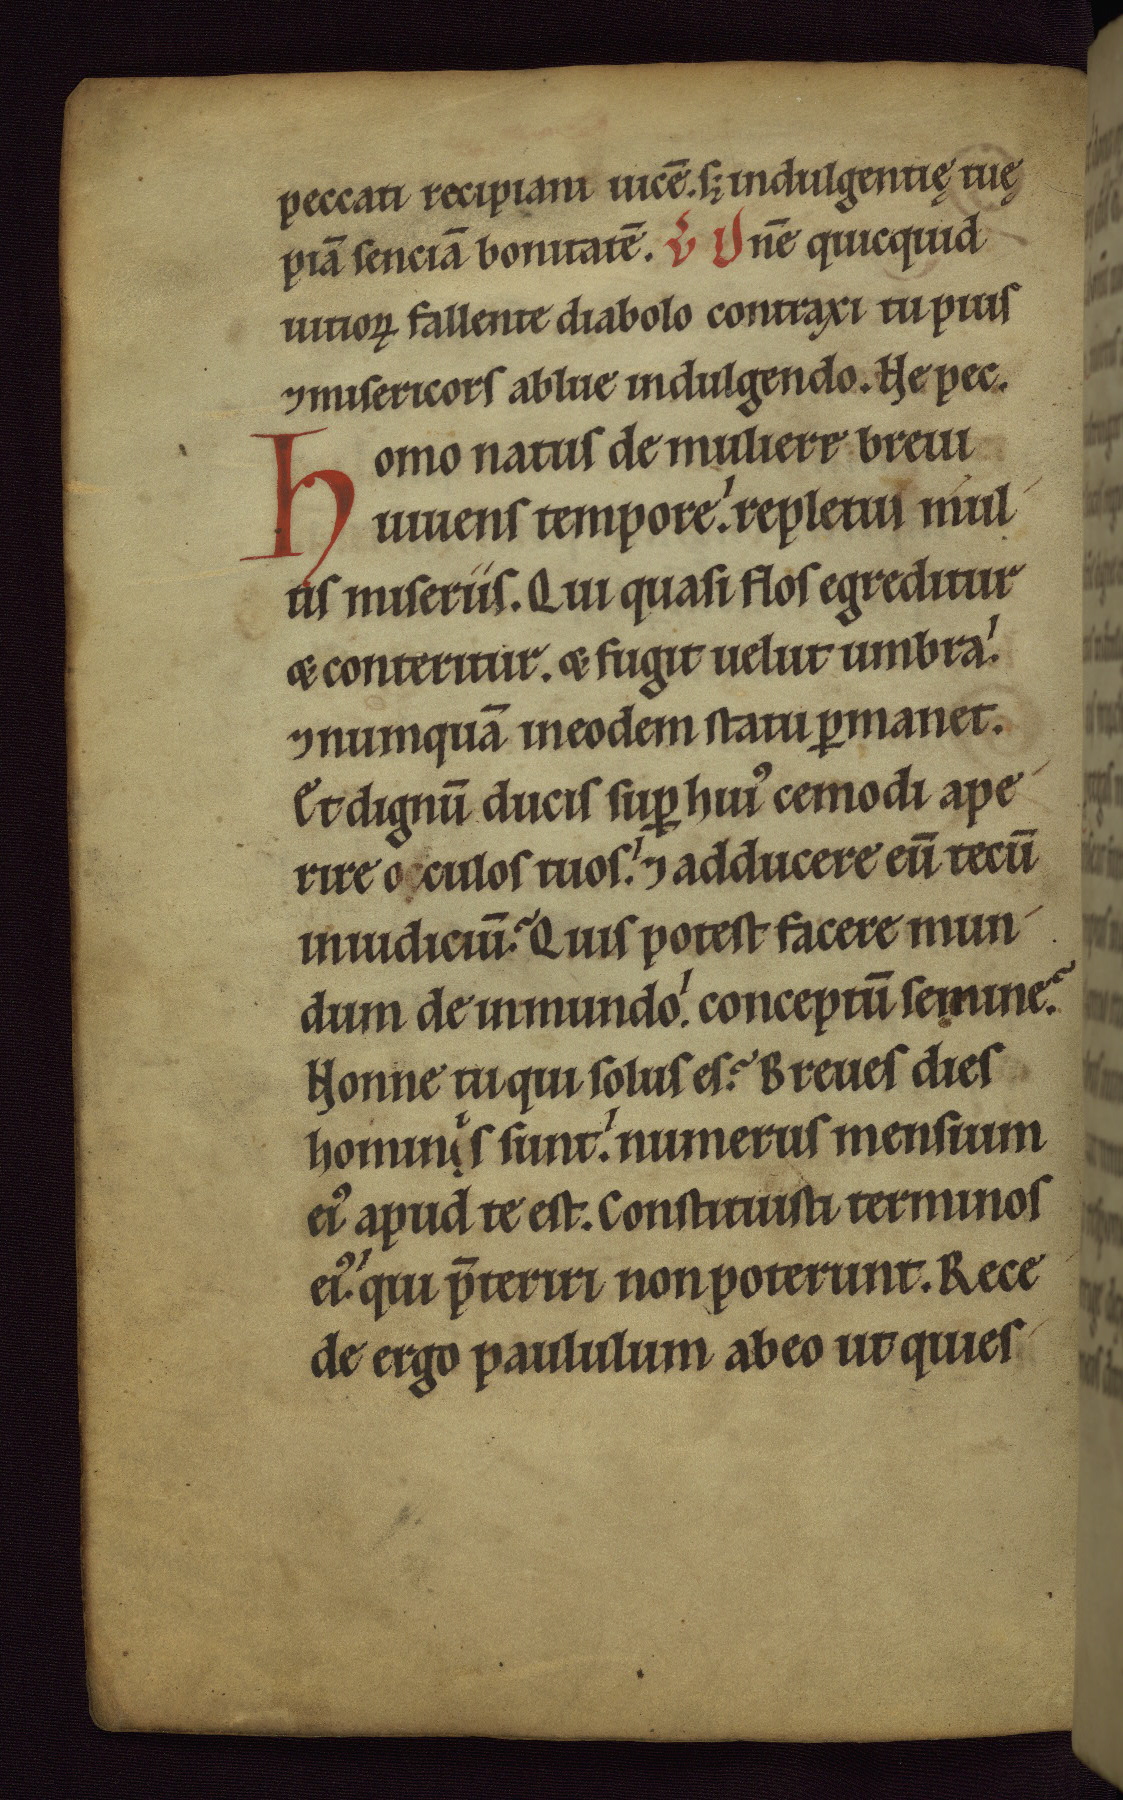 peccati recipiam uicē. sꝫ indulgentię tuę
piā senciā bonitatē. ℣ Dn̄e quicquid
uitioꝝ fallente diabolo contraxi tu pius
⁊ misericors ablue indulgendo. Ne pec.
homo natus de muliere breui
uiuens tempore. repletur mul
tis miseriis. Qui quasi flos egreditur
& conteritur. & fugit uelut umbra.
⁊ numquā in eodem statu ꝑmanet.
Et dignū ducis suꝑ huiꝰcemodi ape
rire occulos tuos. ⁊ adducere eū tecū
in iudiciū? Quis potest facere mun
dum de inmundo. conceptū semine?
Nonne tu qui solus es? Breues dies
hominis sunt. numerus mensium
eiꝰ apud te est. Constituisti terminos
eiꝰ. qui p̄teriri non poterunt. Rece
de ergo paululum ab eo ut quies